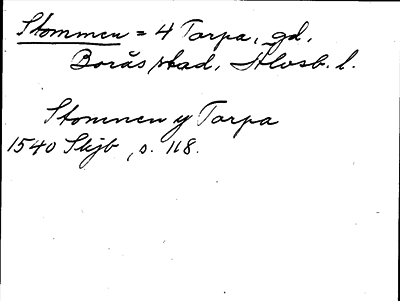 Stommen = 4 Torpa, gd,
Borås stad, Älvsb. l.
Stommen y Torpa
1540 Skjb, s. 118.